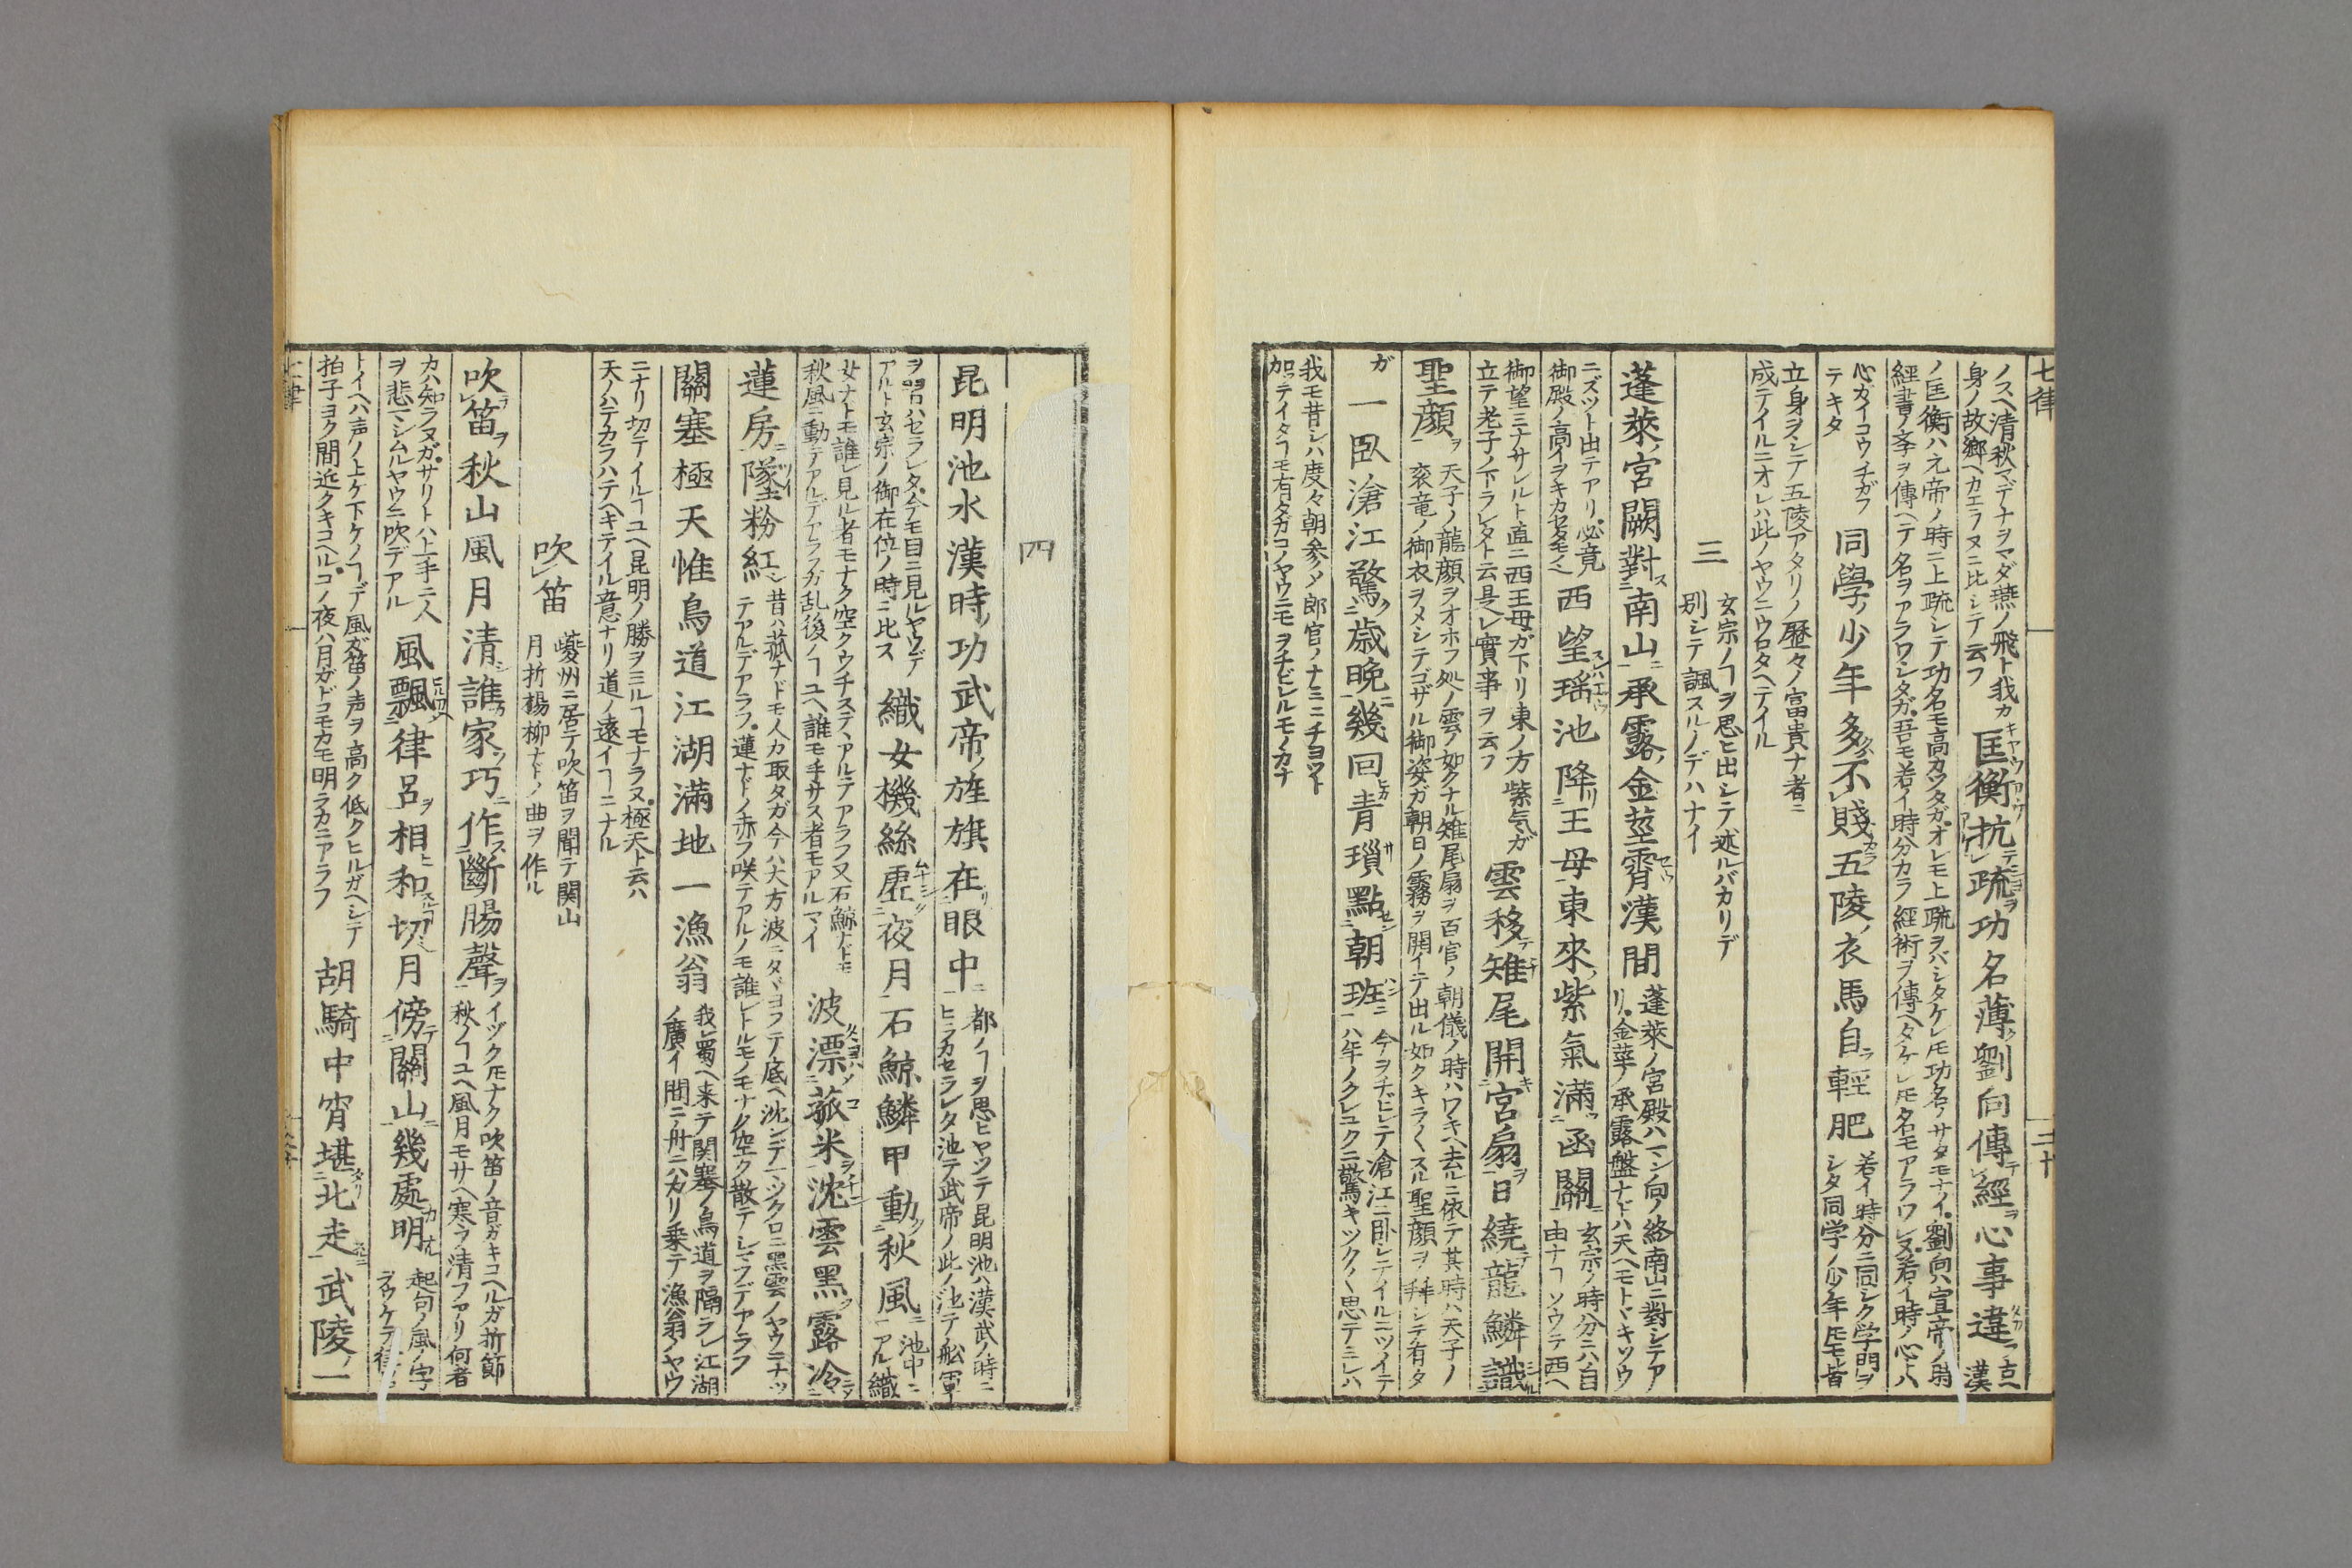 七律
ノスヘ清秋マデナヲマダ燕ノ飛ト我カ
身ノ故郷ヘカエラヌニ比シテ云フ
匡衡抗疏功名薄劉向傳經心事違
ノ匡衡ハ元帝ノ時ニ上疏シテ功名モ高カツタガオレモ上疏ヲバシタケレ𪜈功名ノサタモナイ劉向ハ宣帝ノ時
經書ノ夲ヲ傳ヘテ名ヲアラワシタガ吾モ若イ時分カラ經術ヲ傳ヘタケレ𪜈名モアラワレヌ若イ時ノ心トハ
心カイコウチガフ
テキタ
同學少年多不賤五陵衣馬自輕肥
若イ時分ニ同シク学門ヲ
シタ同学ノ少年𪜈モ皆
立身ヲシテ五陵アタリノ歴々ノ富貴ナ者ニ
成テイルニオレハ此ノヤウニウロタヘテイル
三
玄宗ノヿヲ思ヒ出シテ述ルバカリデ
別シテ諷スルノデハナイ
蓬萊宮闕對南山承露金莖霄漢間
蓬萊ノ宮殿ハマン向ノ終南山ニ對シテア
リ金莖ノ承露盤ナドハ天ヘモトヾキソウ
ニズツト出テアリ必竟
御殿ノ高イヲキカセタモノ
西望瑤池降王母東來紫氣滿函關
玄宗ノ時分ニハ自
由ナヿソウテ西ヘ
御望ミナサレルト直ニ西王母ガ下リ東ノ方
立テ老子ノ下ラレタト云是レ實事ヲ云フ
紫気ガ
雲移雉尾開宮扇日繞龍鱗識
聖顔
天子ノ龍顔ヲオホフ処ノ雲ノ如クナル雉尾扇ヲ百官ノ朝儀ノ時ハワキヘ去ルニ依テ其時ハ天子ノ
衮竜ノ御衣ヲメシテゴザル御姿ガ朝日ノ霧ヲ開イテ出ル如クキラ〱スル聖顔ヲ拜シテ有タ
ガ
一臥滄江驚歳晩幾回青瑣點朝班
今ヲチビレテ滄江ニ卧レテイルニツイテ
ハ年ノクレユクニ驚キツク〱思テミレハ
我モ昔シハ度々朝参メ郎官ノナミニチヨツト
加ツテイタヿモ有タガコノヤウニモヲチビレルモノカナ
四
昆明池水漢時功武帝旌旗在眼中
都ノヿヲ思ヒヤツテ昆明池ハ漢武ノ時ニ
ヒラカセラレタ池テ武帝ノ此ノ池テノ舩軍
ヲ習ハセラレタ今デモ目ニ見ルヤウデ
アルト玄宗ノ御在位ノ時ニ比ス
織女機絲虚夜月石鯨鱗甲動秋風
池中ニ
アル織
女ナトモ誰レ見ル者モナク空クウチステヽアルテアラフ又石鯨ナトモ
秋風ニ動テアルデアラフガ乱後ノヿユヘ誰モ手サス者モアルマイ
波漂菰米沈雲黑露冷
蓮房墜粉紅
昔ハ菰ナドモ人カ取タガ今ハ大方波ニタヾヨフテ底ヘ沈ンデマツクロニ黒雲ノヤウニナツ
テアルデアラフ蓮ナドノ赤フ咲テアルノモ誰レトルモノモナク空ク散テシマフデアラフ
關塞極天惟鳥道江湖滿地一漁翁
我レ蜀ヘ来テ関塞ノ鳥道ヲ隔ラレ江湖
ノ廣イ間ニ舟ニハカリ乗テ漁翁ノヤウ
ニナリ切テイルヿユヘ昆明ノ勝ヲミルヿモナラヌ極天ト云ハ
天ノハテカラハテヘキテイル意ナリ道ノ遠イヿニナル
吹笛
夔州ニ居テ吹笛ヲ聞テ関山
月折楊柳ナドノ曲ヲ作ル
吹笛秋山風月清誰家巧作斷腸聲
イヅク𪜈ナク吹笛ノ音ガキコヘルガ折節
秋ノヿユヘ風月モサヘ寒フ清フアリ何者
カハ知ラヌガサリトハ上手ニ人
ヲ悲マシムルヤウニ吹デアル
風飄律呂相和切月傍關山幾處明
起句ノ風ノ字
ヲウケテ
トイヘハ声ノ上ケ下ケノヿデ風ガ笛ノ声ヲ高ク低クヒルガヘシテ
拍子ヨク間近クキコヘルコノ夜ハ月ガドコモカモ明ラカニアラフ
胡騎中宵堪北走武陵一